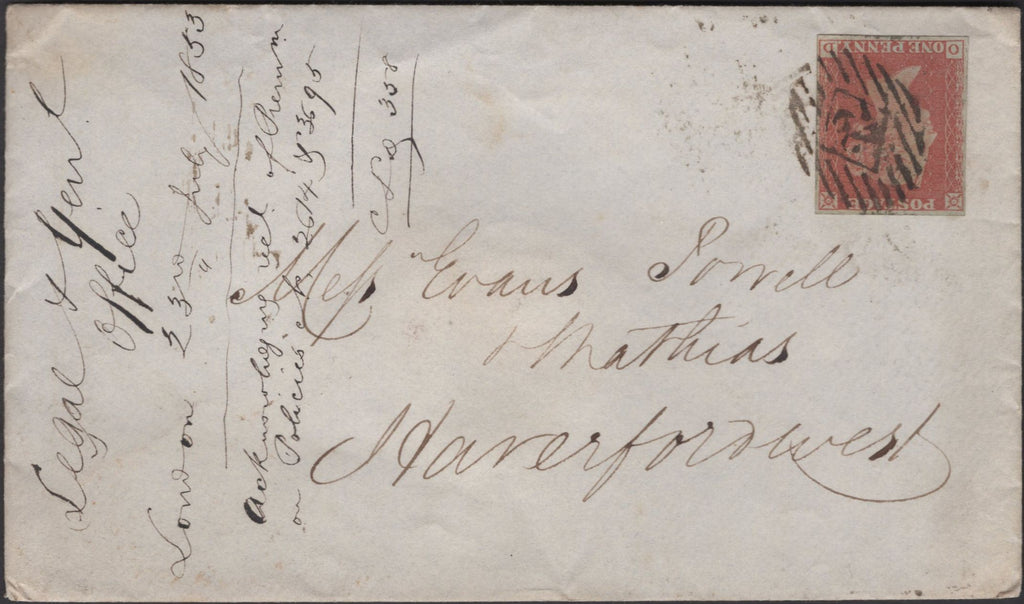 Legal & Genl
Office
London 23rd July 1853
Acknowledging rect of Premm
on Policies No 2614 & 3695
358
Mess Evans Powell
& Mathias
Haverfordwest
POSTAGE
ONE PENNY
O D